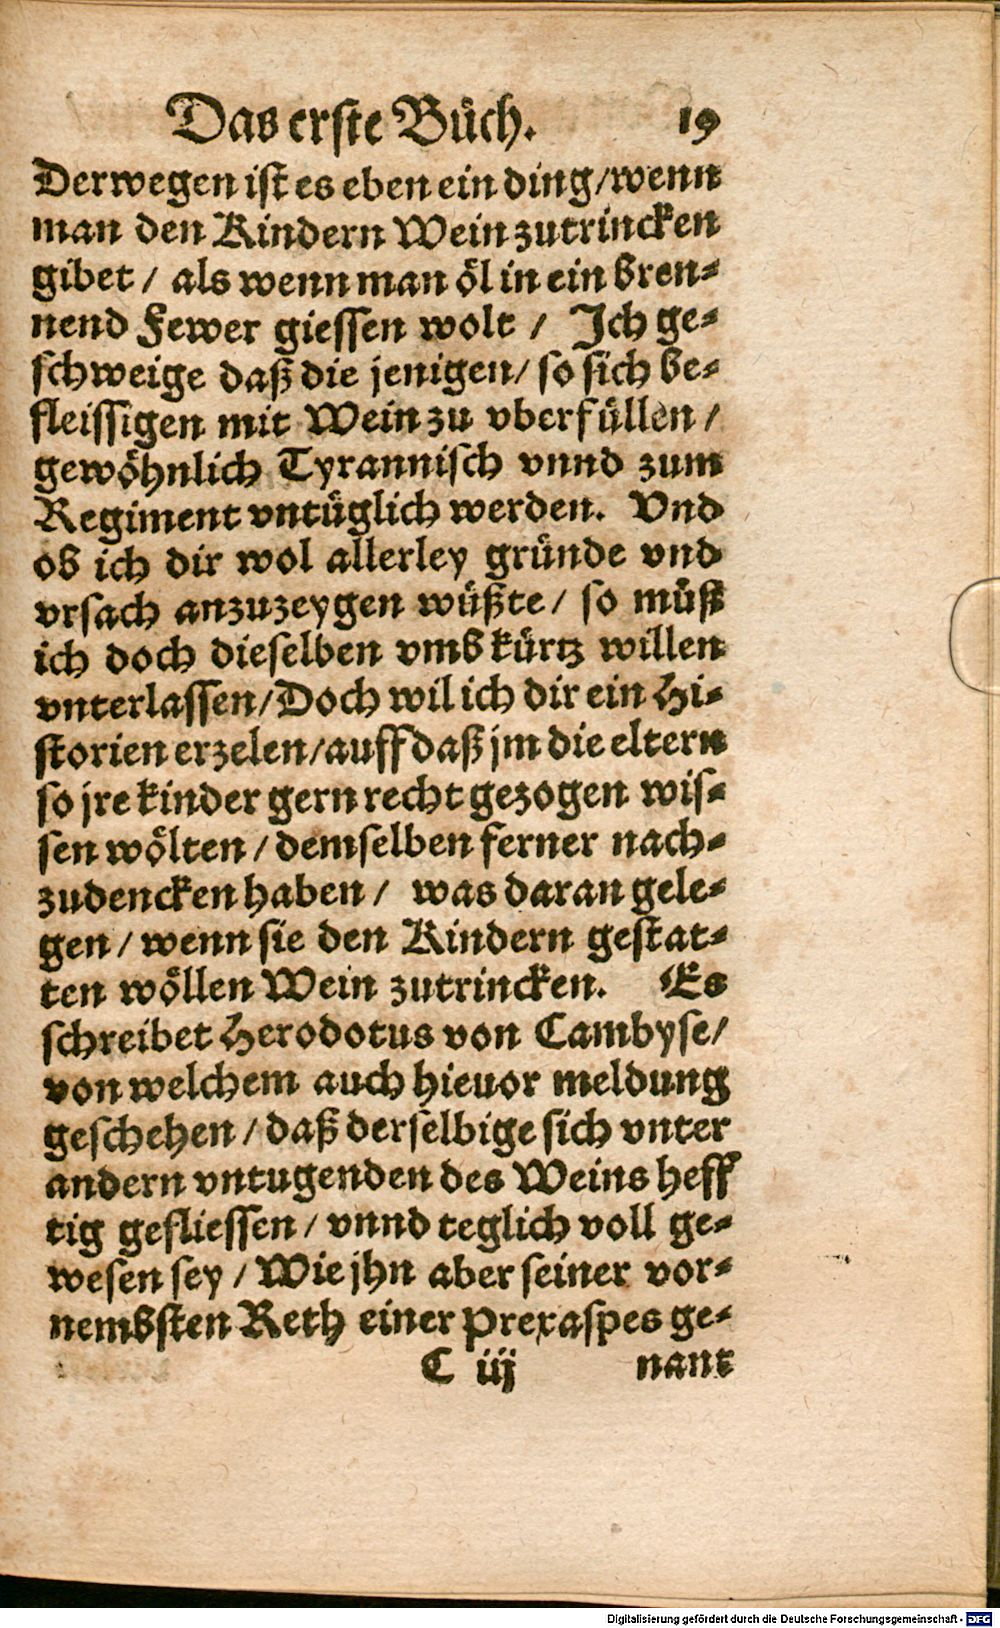 Das erste Büch. 19
Derwegen ist es eben ein ding/wenn
man den Kindern Wein zutrincken
gibet / als wenn man öl in ein bren⸗
nend Fewer giessen wolt / Ich ge⸗
schweige daß die jenigen/ so sich be⸗
fleissigen mit Wein zu vberfüllen /
gewöhnlich Tyrannisch vnnd zum
Regiment vntüglich werden. Vnd
ob ich dir wol allerley gründe vnd
vrsach anzuzeygen wüßte/ so müst
ich doch dieselben vmb kürtz willen
vnterlassen/Doch wil ich dir ein Hi⸗
storien erzelen/auff daß jm die eltern
so jre kinder gern recht gezogen wis⸗
sen wölten / demselben ferner nach⸗
zudencken haben / was daran gele⸗
gen / wenn sie den Kindern gestat⸗
ten wöllen Wein zutrincken. Es
schreibet Herodotus von Cambyse/
von welchem auch hieuor meldung
geschehen / daß derselbige sich vnter
andern vntugenden des Weins heff
tig gefliessen / vnnd teglich voll ge⸗
wesen sey / Wie jhn aber seiner vor⸗
nembsten Reth einer Prexaspes ge⸗
C iij nant
Digitalisierung gefördert durch die Deutsche Forschungsgemeinschaft - DFG